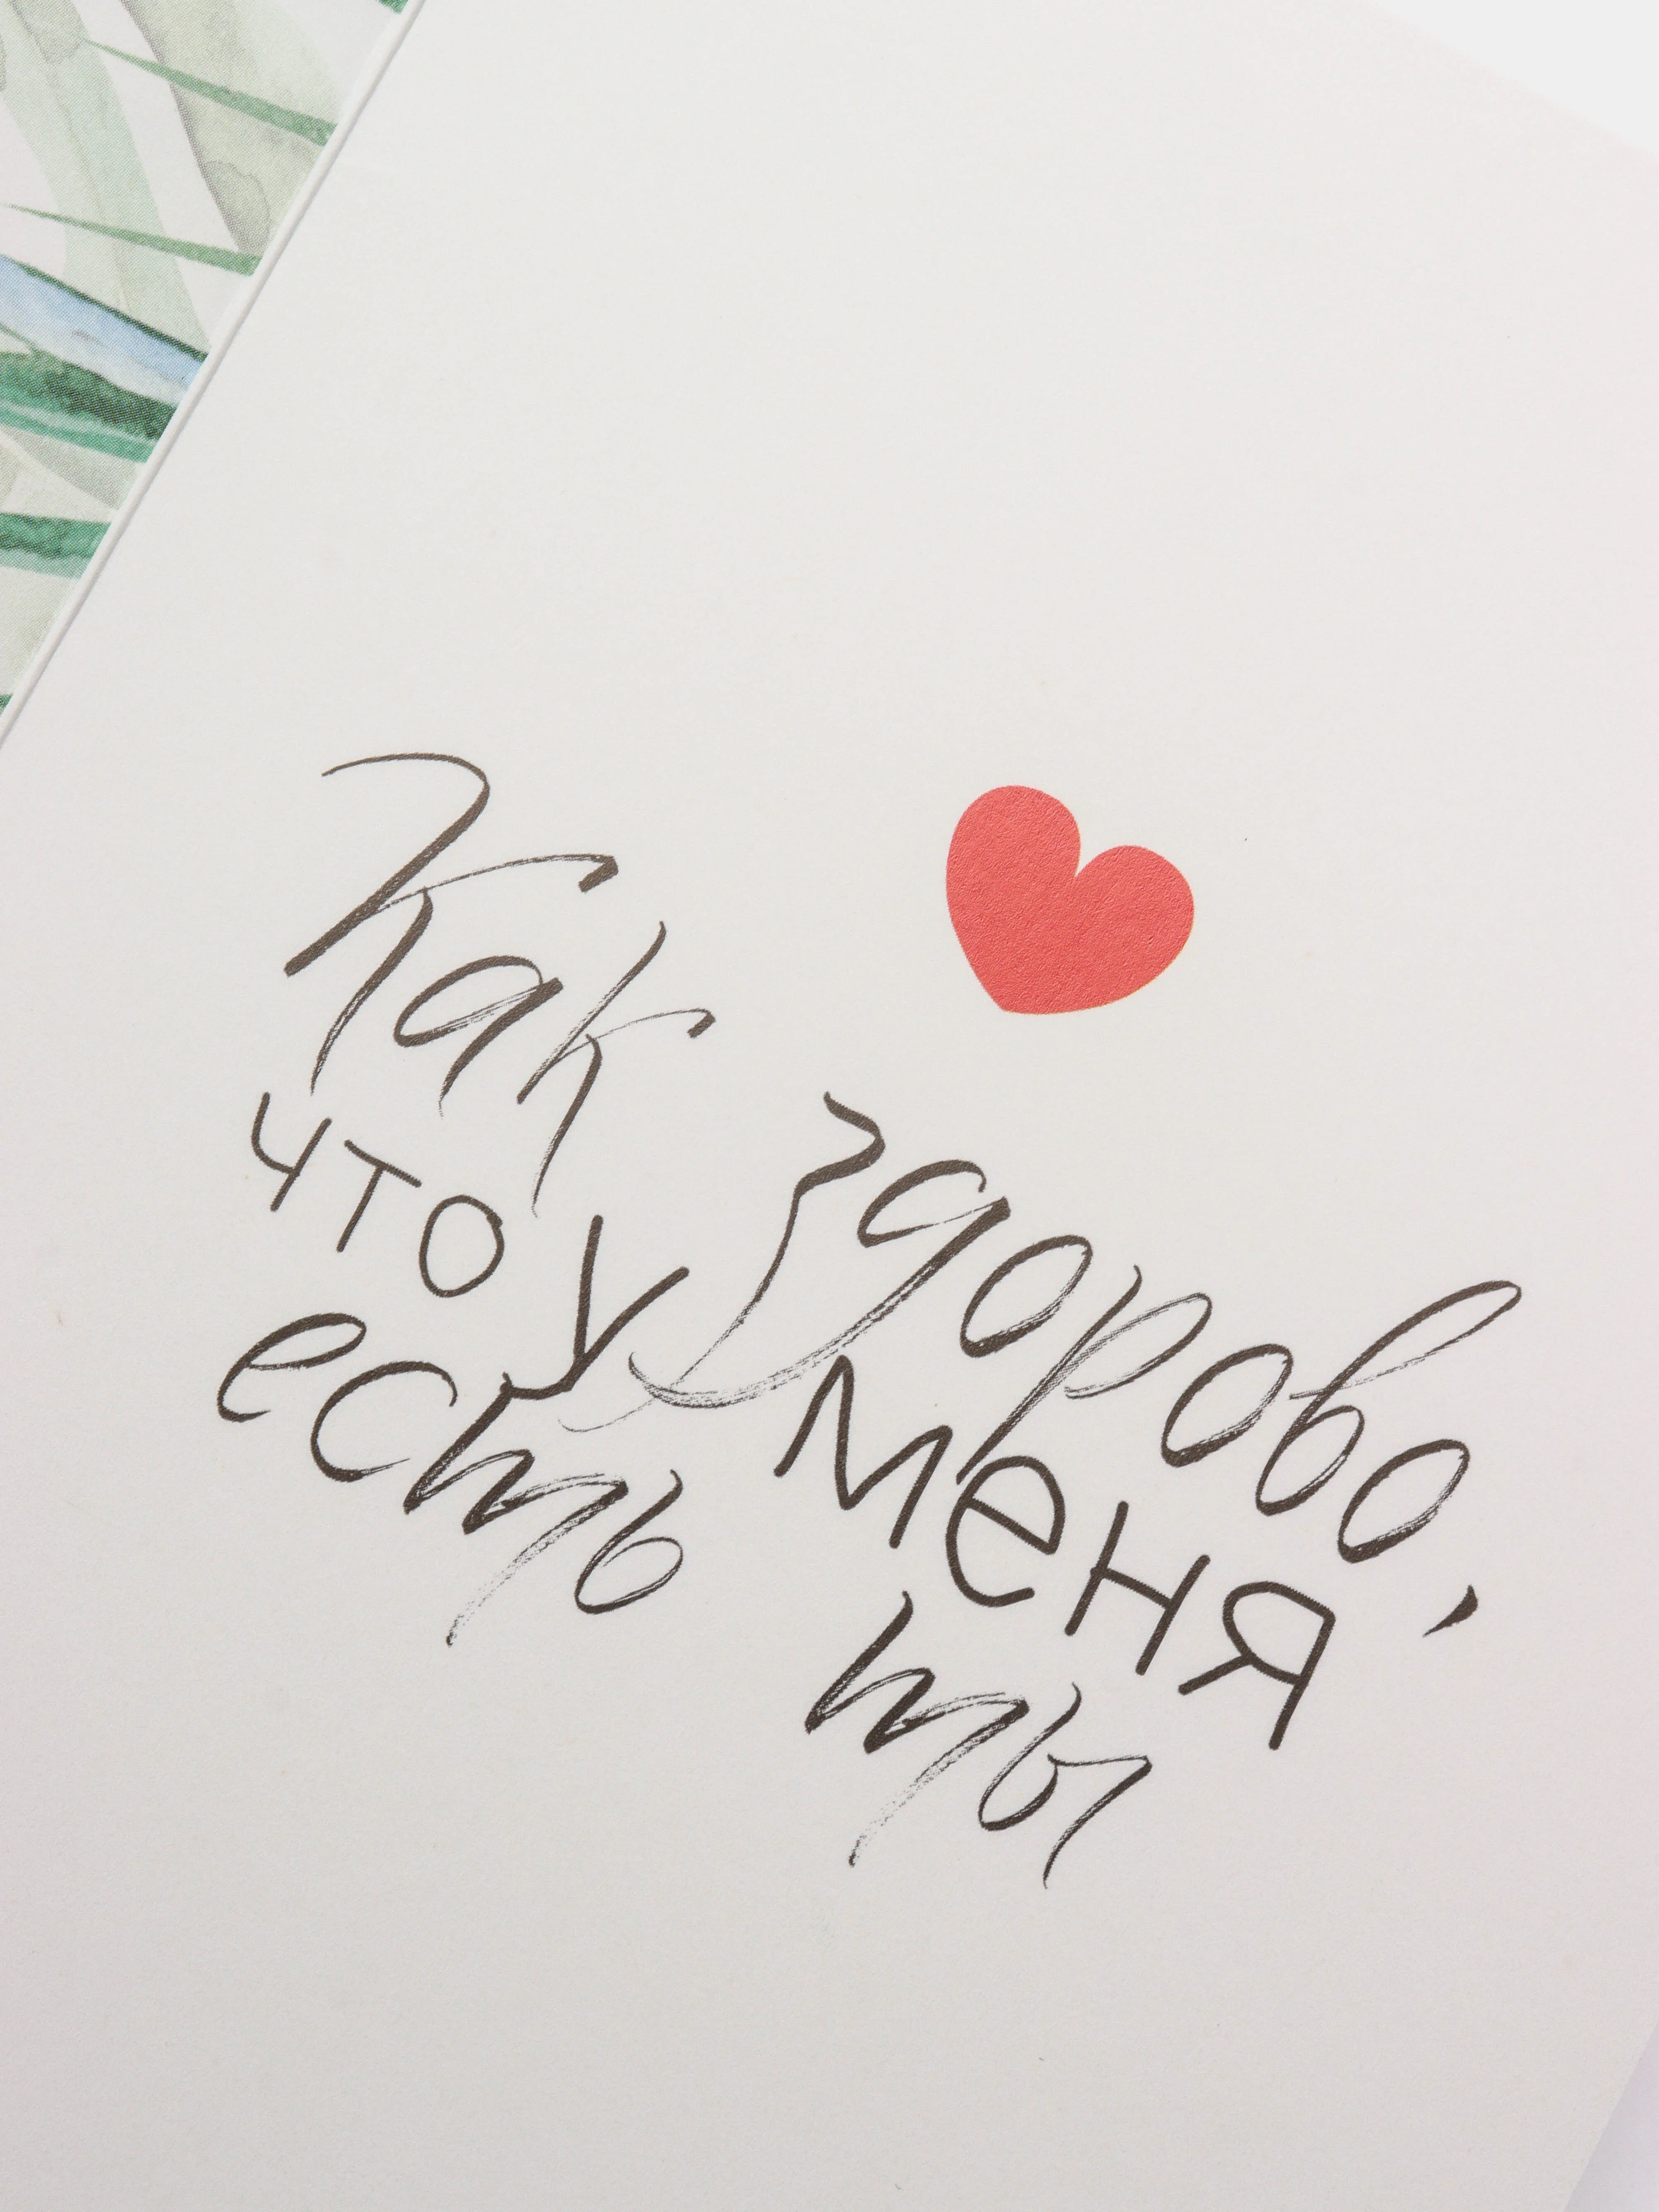 Как здорово,
что у меня
есть ты